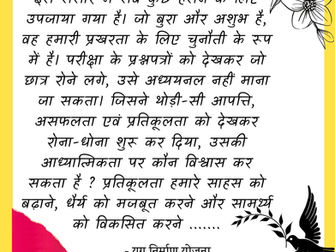 इस संसार में सब कुछ हँसने के लिए
उपजाया गया है। जो बुरा और अशुभ है,
वह हमारी प्रखरता के लिए चुनौती के रूप
में है। परीक्षा के प्रश्नपत्रों को देखकर जो
छात्र रोने लगे, उसे अध्ययनल नहीं माना
जा सकता। जिसने थोड़ी-सी आपत्ति,
असफलता एवं प्रतिकूलता को देखकर
रोना-धोना शुरू कर दिया, उसकी
आध्यात्मिकता पर कौन विश्वास कर
सकता है ? प्रतिकूलता हमारे साहस को
बढ़ाने, धैर्य को मजबूत करने और सामर्थ्य
को विकसित करने .......
- युग निर्माण योजना